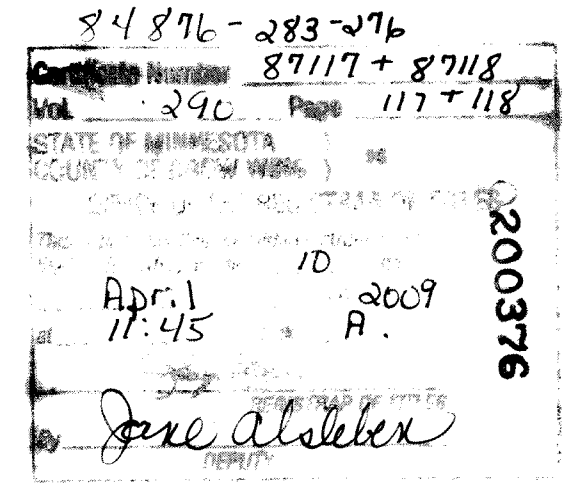 84876-283-276
Certificate Number 87117 + 87118
Vol. 290 Page 117 + 118
STATE OF MINNESOTA )
COUNTY OF CROW WING ) ss
OFFICE OF THE REGISTRAR OF TITLES
10
April 2009
at 11:45 A.
REGISTRAR OF TITLES
By Jane Alsleben
DEPUTY
200376